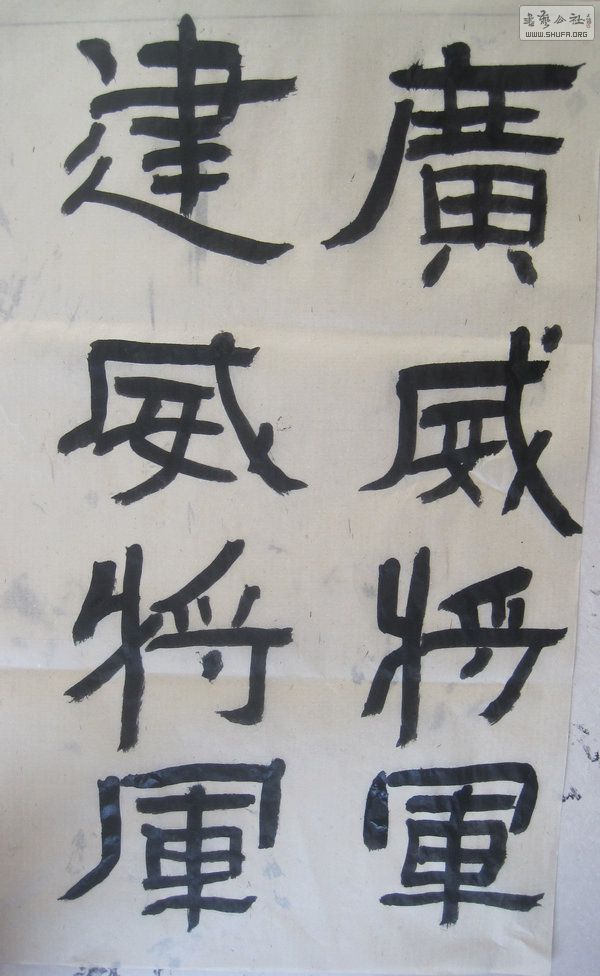 廣威將軍
建威將軍
書藝公社
WWW.SHUFA.ORG